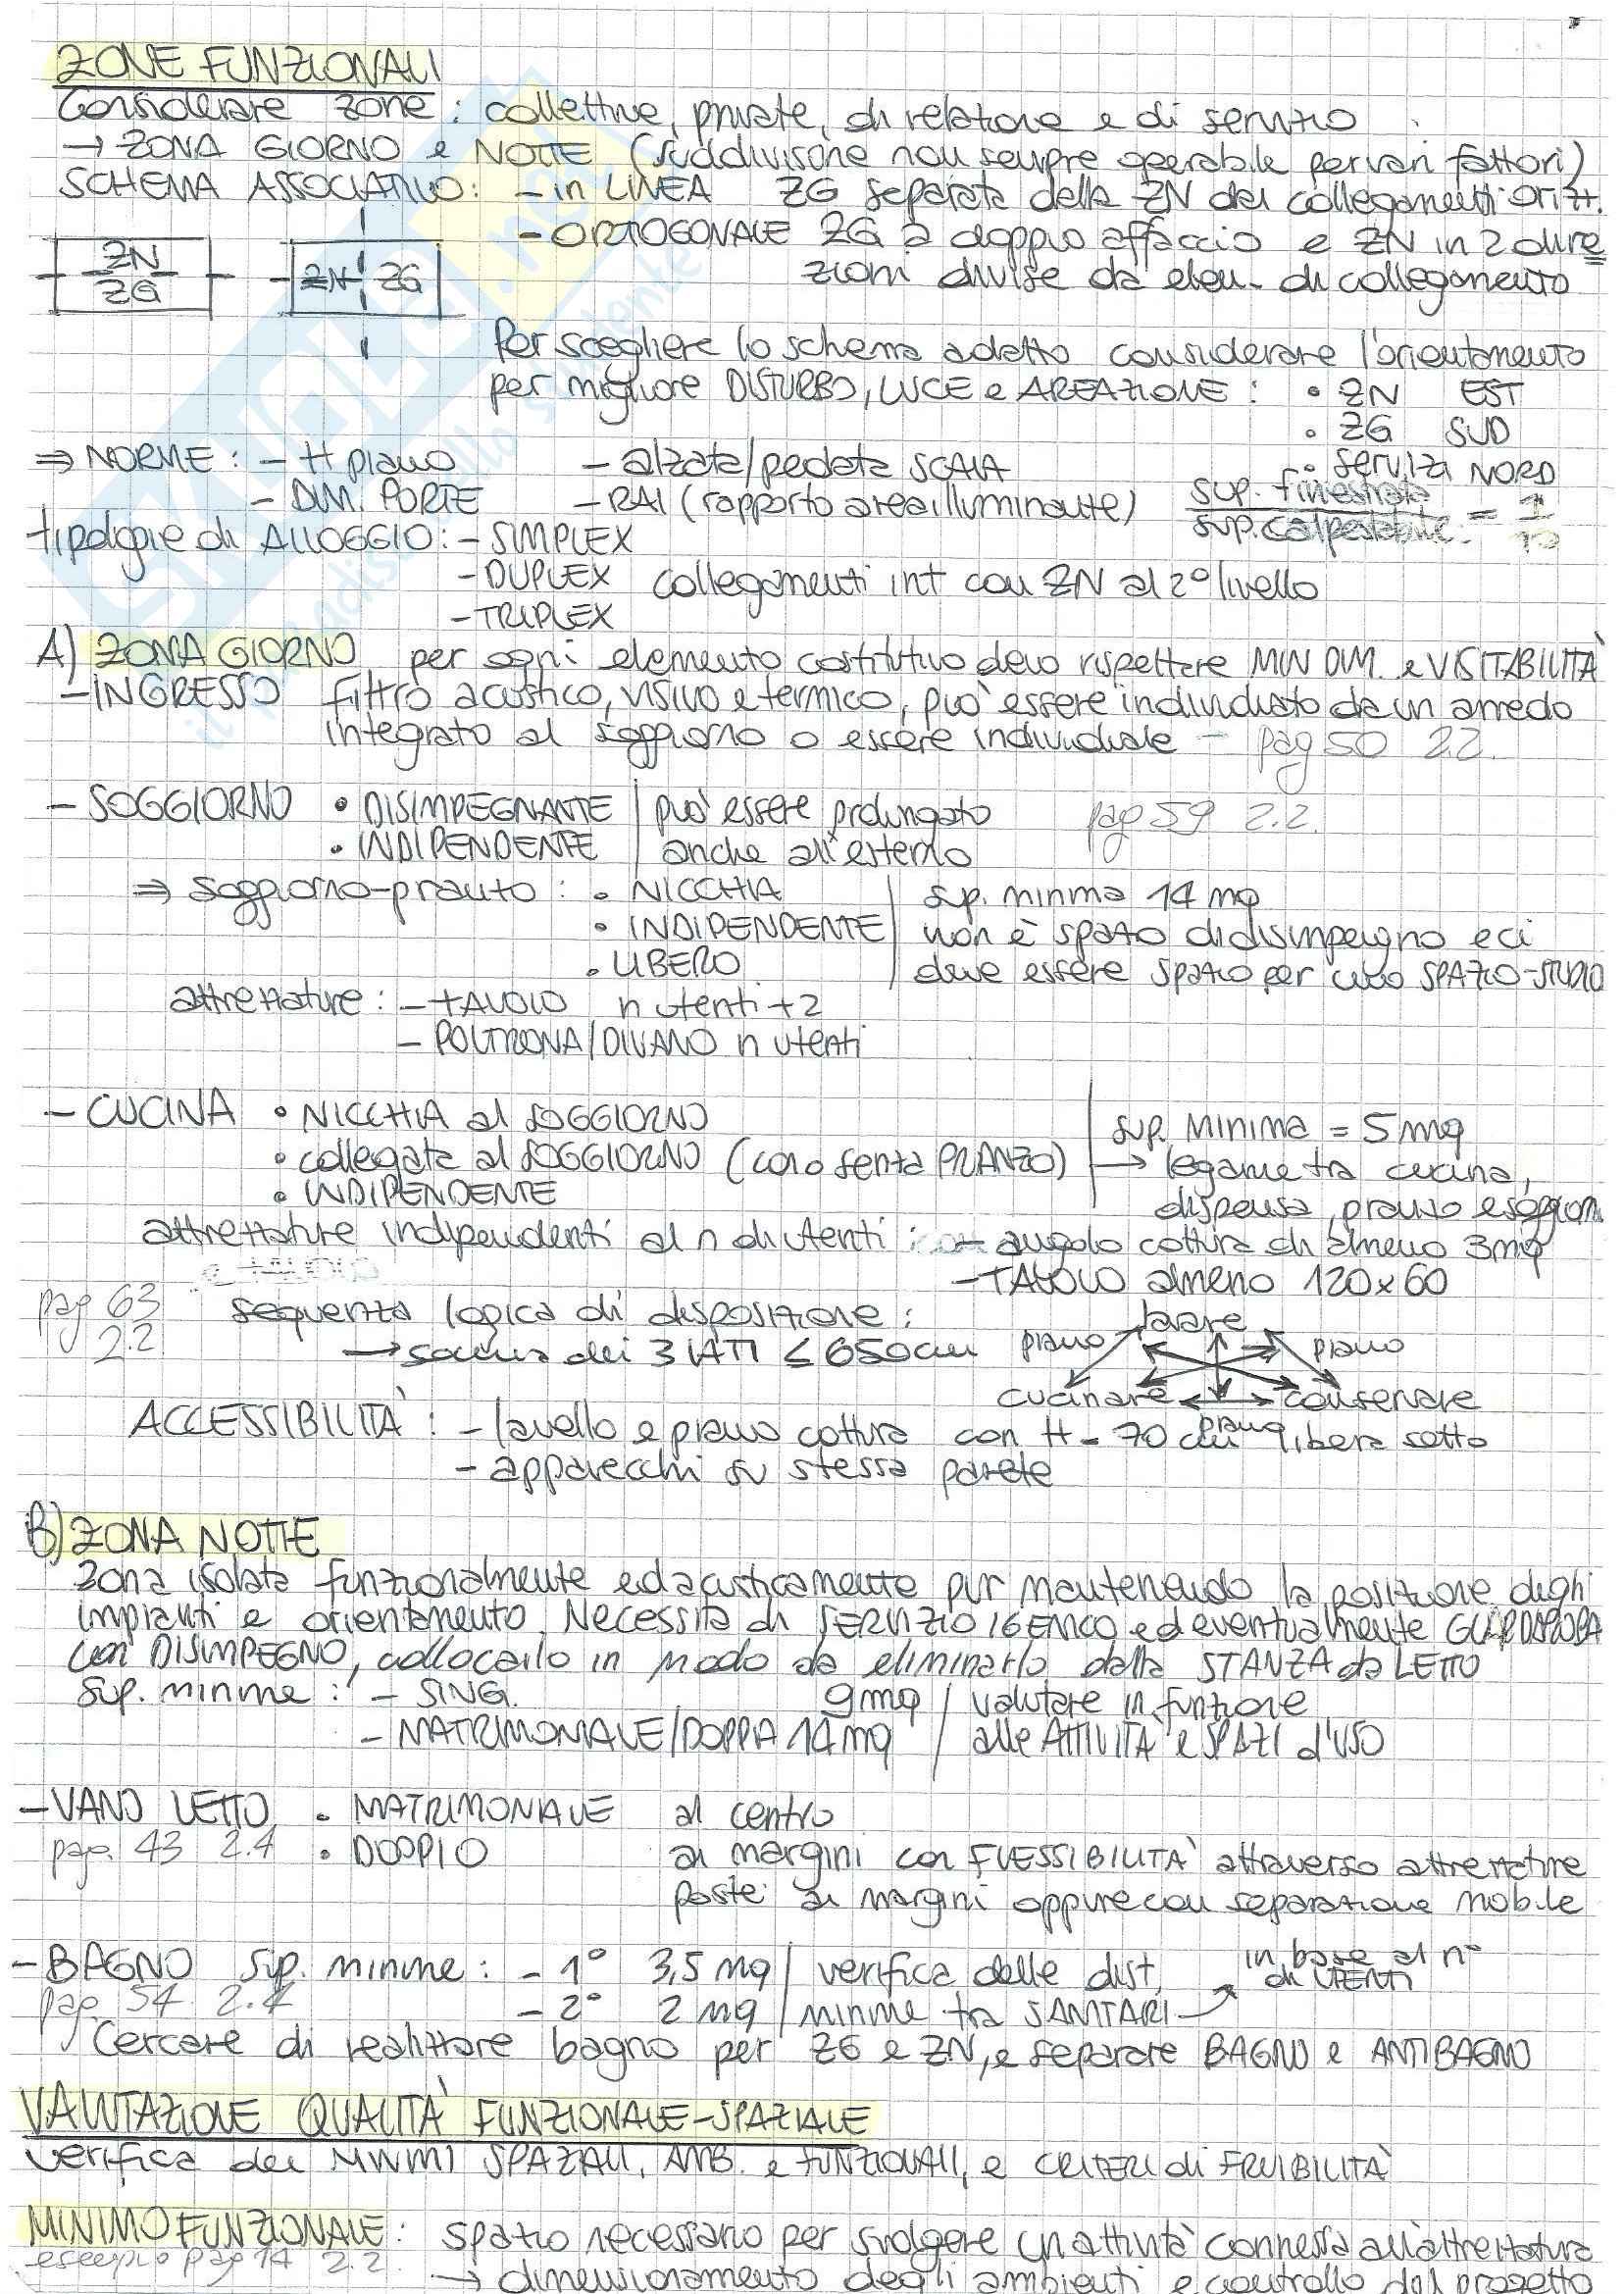 ZONE FUNZIONALI
Considerare zone: collettive, private, di relazione e di servizio
→ ZONA GIORNO e NOTTE (suddivisione non sempre operabile per vari fattori)
SCHEMA ASSOCIATIVO: - in LINEA ZG separata dalla ZN dai collegamenti orizz.
- ORTOGONALE ZG a doppio affaccio e ZN in 2 dire
zioni divise da elem. di collegamento
ZN
ZG
ZN ZG
Per scegliere lo schema adatto considerare l'orientamento
per migliore DISTURBO, LUCE e AREAZIONE: • ZN EST
• ZG SUD
• servizi NORD
⇒ NORME: - H piano - alzata/pedata SCALA
- DIM. PORTE - RAI (rapporto area illuminante) sup. finestrata / sup. calpestabile = 1/10
tipologie di ALLOGGIO: - SIMPLEX
- DUPLEX collegamenti int con ZN al 2° livello
- TRIPLEX
A) ZONA GIORNO per ogni elemento costitutivo devo rispettare MIN DIM. e VISITABILITÀ
- INGRESSO filtro acustico, visivo e termico, può essere individuato da un arredo
integrato al soggiorno o essere individuale - pag 50 2.2.
- SOGGIORNO • DISIMPEGNANTE / può essere prolungato pag 59 2.2.
• INDIPENDENTE / anche all'esterno
⇒ soggiorno-pranzo: • NICCHIA / sup. minima 14 mq
• INDIPENDENTE / non è spazio di disimpegno e ci
• LIBERO / deve essere spazio per uno SPAZIO-STUDIO
attrezzature: - TAVOLO n utenti +2
- POLTRONA/DIVANO n utenti
- CUCINA • NICCHIA al SOGGIORNO sup. minima = 5 mq
• collegata al SOGGIORNO (con o senza PRANZO) → legame tra cucina,
• INDIPENDENTE dispensa, pranzo e soggiorn
attrezzature indipendenti al n di utenti: - angolo cottura di almeno 3mq
- TAVOLO almeno 120x60
pag 63
2.2
sequenza logica di disposizione:
→ somma dei 3 LATI ≤ 650cm
lavare
piano piano
cucinare conservare
piano
ACCESSIBILITÀ: - lavello e piano cottura con H = 70 cm libera sotto
- apparecchi su stessa parete
B) ZONA NOTTE
Zona isolata funzionalmente ed acusticamente pur mantenendo la posizione degli
impianti e orientamento. Necessita di SERVIZIO IGENICO ed eventualmente GUARDAROBA
con DISIMPEGNO, collocarlo in modo da eliminarlo dalla STANZA da LETTO
sup. minime: - SING. 9mq / valutare in funzione
- MATRIMONIALE/DOPPIA 14mq / alle ATTIVITÀ e SPAZI d'USO
- VANO LETTO • MATRIMONIALE al centro
pag. 43 2.4 • DOPPIO ai margini con FLESSIBILITÀ attraverso attrezzature
poste ai margini oppure con separazione mobile
- BAGNO sup. minime: - 1° 3,5 mq / verifica delle dist. in base al n°
di UTENTI
pag. 54 2.4 - 2° 2 mq / minime tra SANITARI
Cercare di realizzare bagno per ZG e ZN, e separare BAGNO e ANTIBAGNO
VALUTAZIONE QUALITÀ FUNZIONALE-SPAZIALE
verifica dei MINIMI SPAZIALI, AMB. e FUNZIONALI, e CRITERI di FRUIBILITÀ
MINIMO FUNZIONALE: spazio necessario per svolgere un attività connessa all'attrezzatura
esempio pag 14 2.2
→ dimensionamento degli ambienti e controllo del progetto